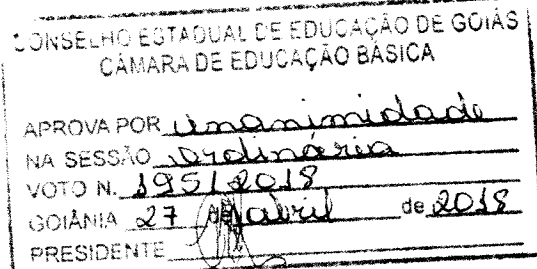 CONSELHO ESTADUAL DE EDUCAÇÃO DE GOIÁS
CÂMARA DE EDUCAÇÃO BÁSICA
APROVA POR unanimidade
NA SESSÃO ordinária
VOTO N. 195/2018
GOIÂNIA 27 de abril de 2018
PRESIDENTE